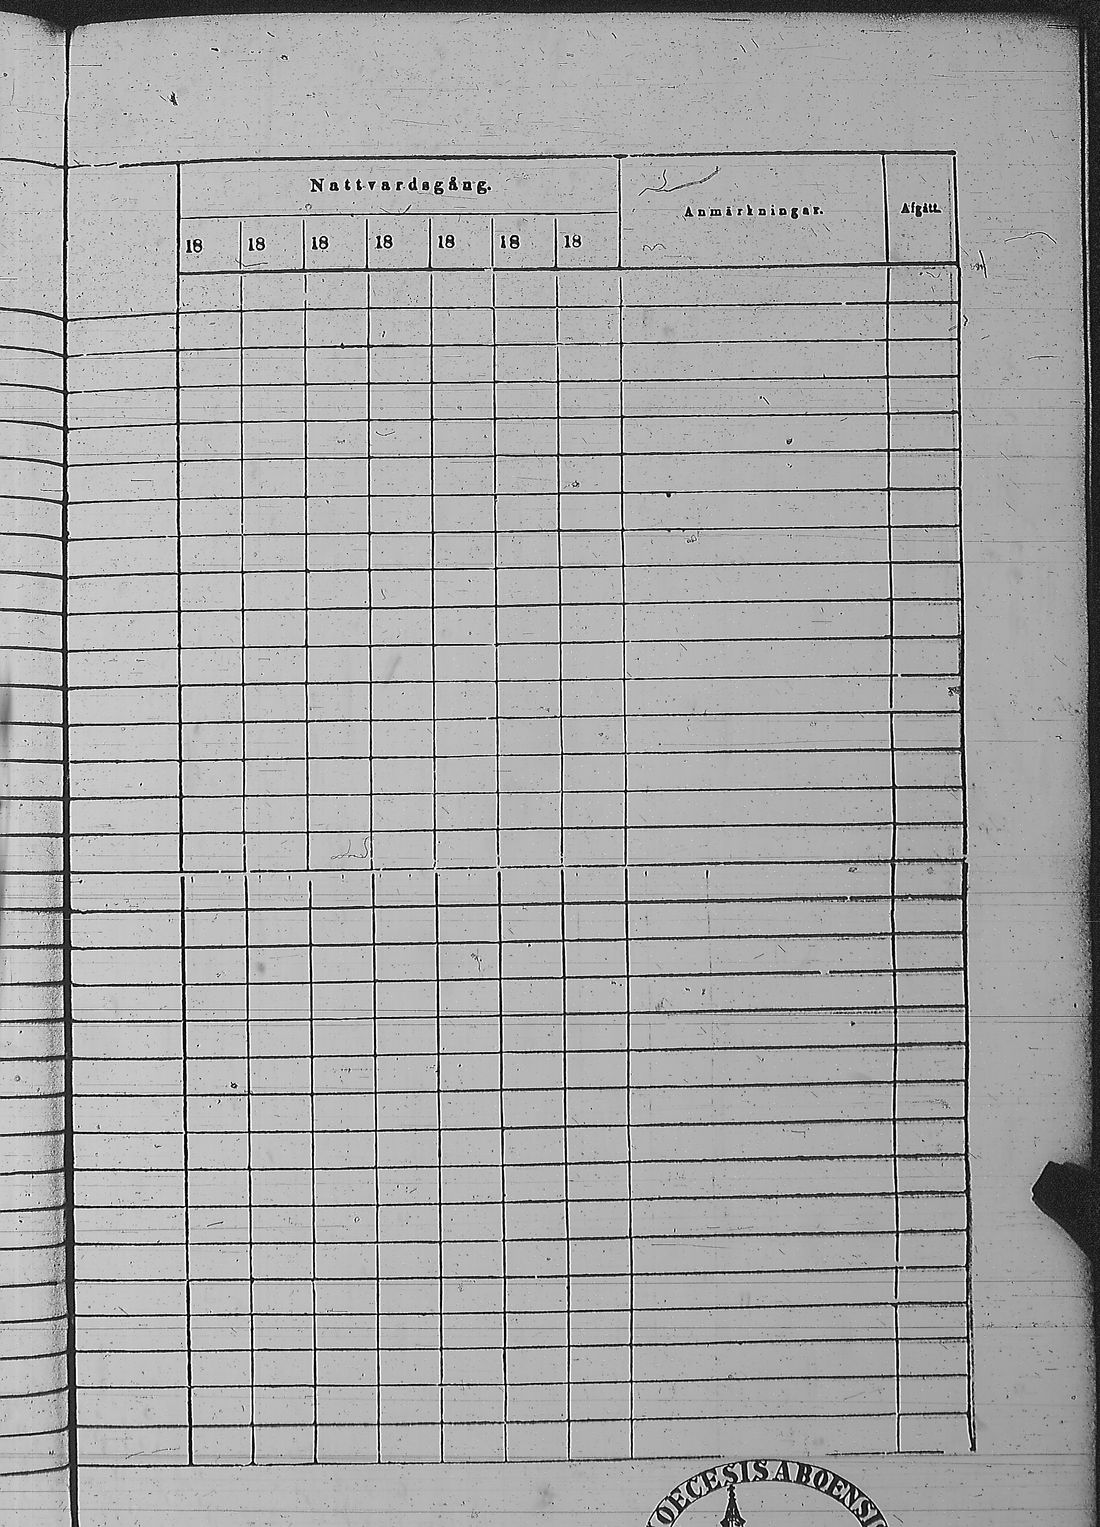 Nattvardsgång.
Anmärkningar.
Afgått.
18 18 18 18 18 18 18
OECESIS ABOENSI